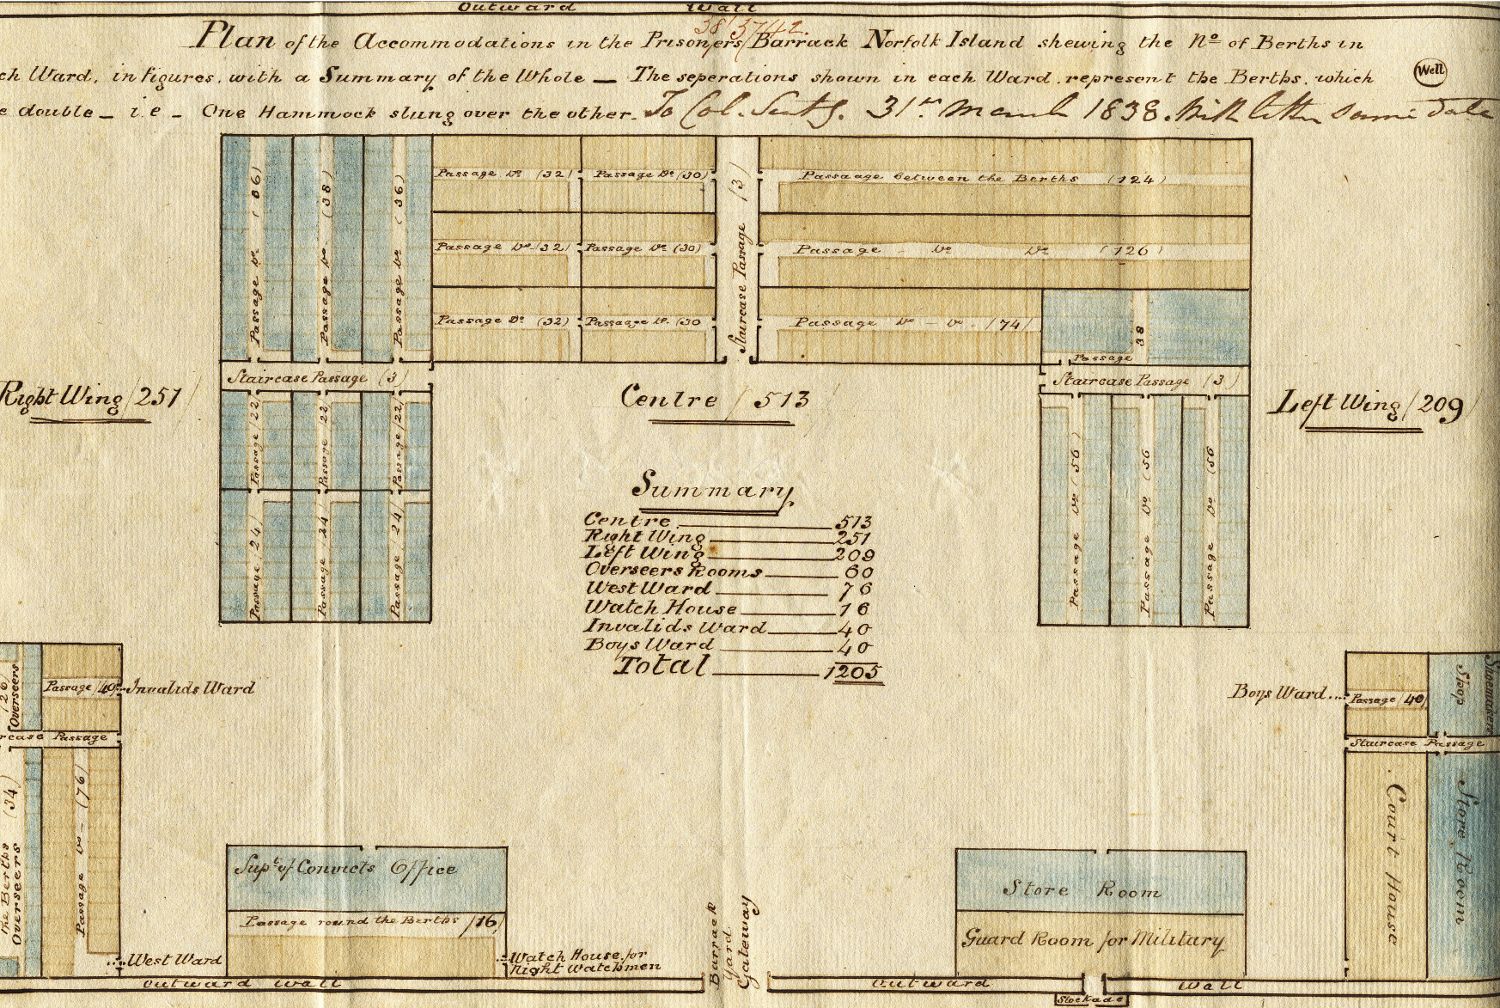 Outward Wall
38/3742.
Plan of the Accommodations in the Prisoners Barrack Norfolk Island shewing the No of Berths in
ch Ward, in figures, with a Summary of the Whole — The seperations shown in each Ward, represent the Berths, which
e double _ i.e _ One Hammock slung over the other. To Col. 31st March 1838. With letter same date
Well
Passage Do (36)
Passage Do (38)
Passage Do (36)
Passage Do (32)
Passage Do (30)
Staircase Passage (3)
Passaage between the Berths (124)
Passage Do (32)
Passage Do (30)
Passage - Do Do (126)
Passage Do (32)
Passaage Do (30
Passage Do - Do. (74)
38
Passage
Staircase Passage (3)
Staircase Passage (3)
Right Wing / 251
Centre / 513
Left Wing / 209
Passage (22
Passage 22
Passage (22
Passage (24)
Passage 24
Passage 24
Passage Do (56)
Passage Do (56
Passage Do (56
Summary
Centre 513
Right Wing 251
Left Wing 209
Overseers Rooms 60
West Ward 76
Watch House 16
Invalids Ward 40
Boys Ward 40
Total 1205
(26)
Overseers
Passage (40
Invalids Ward
rcase Passage
the Berths (34)
Overseers
Passage Do - (76)
West Ward
Supt of Convicts Office
Passage round the Berths (16)
Watch House for
Night Watchmen
Barrack
Yard
Gateway
Store Room
Guard Room for Military
Boys Ward
Passage (40)
Shoemakers
Shop
Staircase Passage
Court House
Store Room
Outward Wall
Outward Wall
Stockade